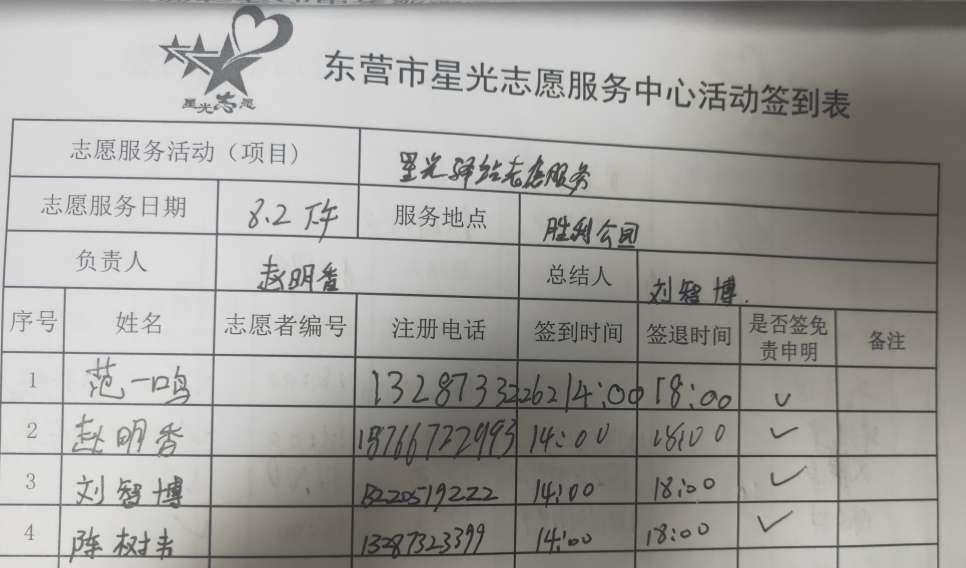 星光志愿
东营市星光志愿服务中心活动签到表
志愿服务活动（项目） 星光驿站志愿服务
志愿服务日期 8.2 下午 服务地点 胜利公园
负责人 赵明香 总结人 刘智博.
序号 姓名 志愿者编号 注册电话 签到时间 签退时间 是否签免责申明 备注
1 范一鸣 13287332262 14:00 18:00 ✓
2 赵明香 18766722993 14:00 18:00 ✓
3 刘智博 18220519222 14:00 18:00 ✓
4 陈树 13287323399 14:00 18:00 ✓